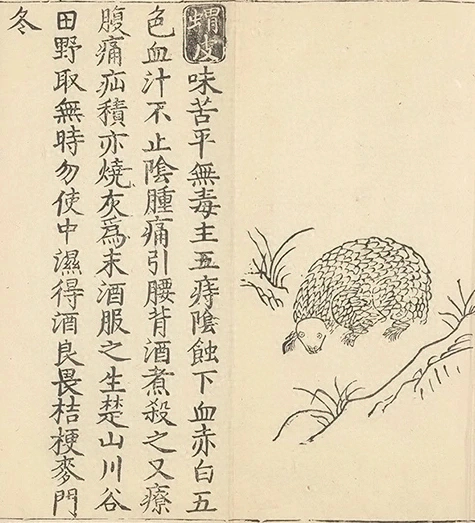 蝟皮味苦平無毒主五痔陰蝕下血赤白五
色血汁不止陰腫痛引腰背酒煮殺之又療
腹痛疝積亦燒灰爲末酒服之生楚山川谷
田野取無時勿使中濕得酒良畏桔梗麥門
冬